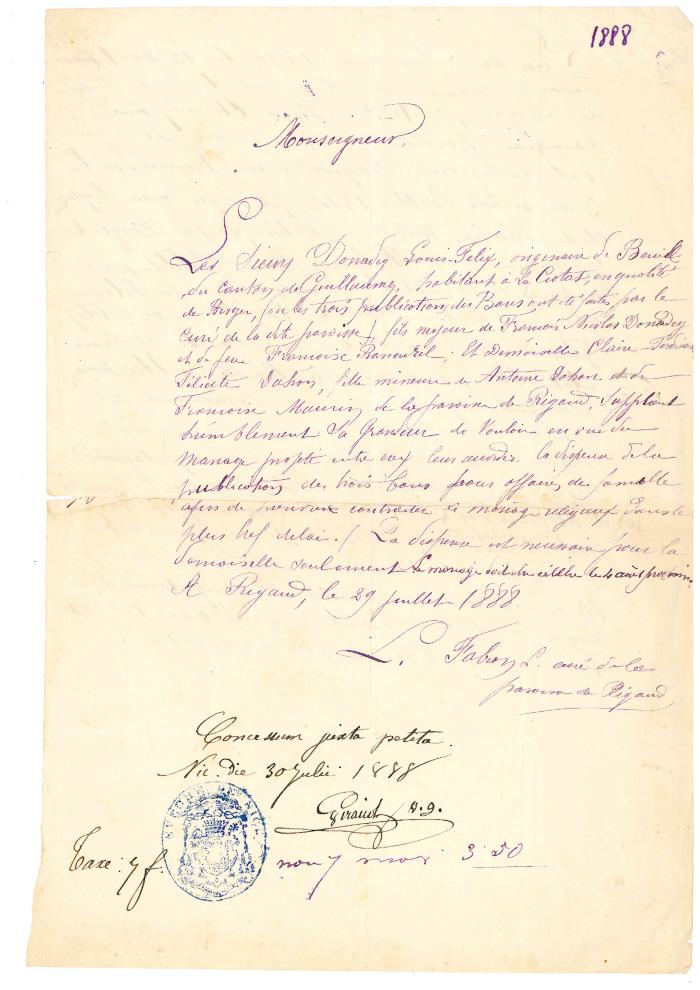 1888
Monseigneur,
Les Sieurs Donadey Louis-Félix, originaire de Beuil
du canton de Guillaumes, habitant à La Ciotat, en qualité
de Berger, (où les trois publications des Bans ont été faites par le
curé de la dite paroisse) fils majeur de François Nicolas Donadey
et de feue Françoise Et Demoiselle Claire-
Félicité Dahon, fille mineure de Antoine Dahon et de
Françoise Maurin de la paroisse de Rigaud, supplient
humblement Sa Grandeur de vouloir en vue du
mariage projeté entre eux leur accorder la dispense de la
publication des trois bans pour affaires de famille
afin de pouvoir contracter ce mariage religieux dans le
plus bref delai. / La dispense est necessaire pour la
demoiselle seulement Le mariage doit être célébré le 4 août prochain.
A Rigaud, le 29 juillet 1888.
L. Fabron P. curé de la
paroisse de Rigaud
Concessum juxta petita.
Nic. die 30 Julii 1888
Giraud v. g.
EVECHE DE NICE
Taxe: 7 f. 3 50